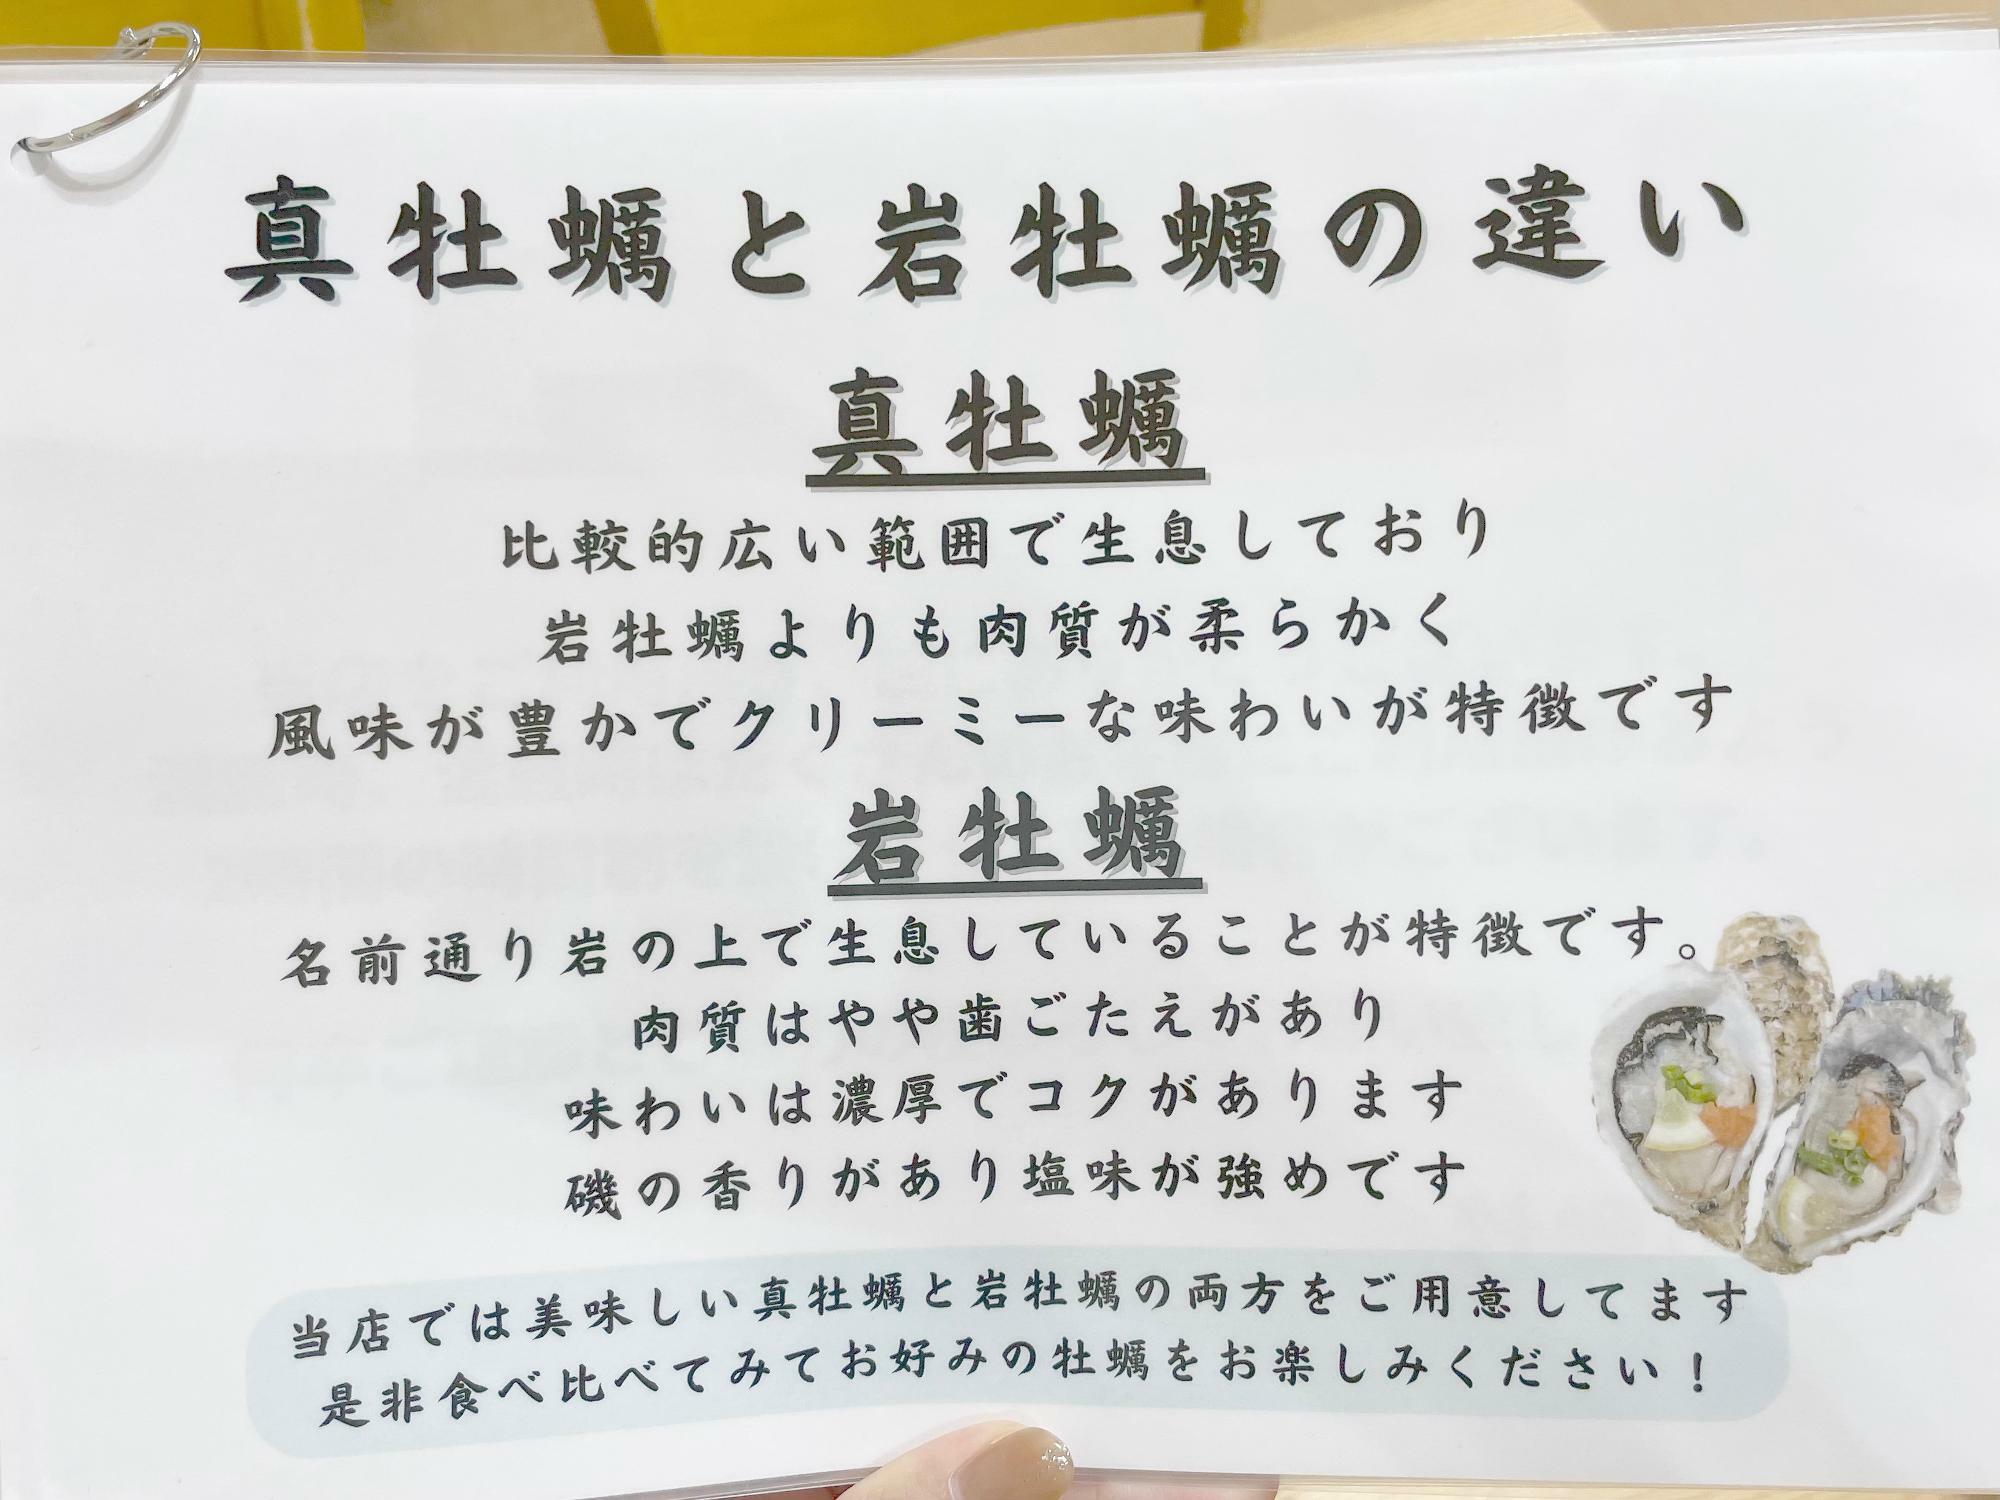 真牡蠣と岩牡蠣の違い
真牡蠣
比較的広い範囲で生息しており
岩牡蠣よりも肉質が柔らかく
風味が豊かでクリーミーな味わいが特徴です
岩牡蠣
名前通り岩の上で生息していることが特徴です。
肉質はやや歯ごたえがあり
味わいは濃厚でコクがあります
磯の香りがあり塩味が強めです
当店では美味しい真牡蠣と岩牡蠣の両方をご用意してます
是非食べ比べてみてお好みの牡蠣をお楽しみください！